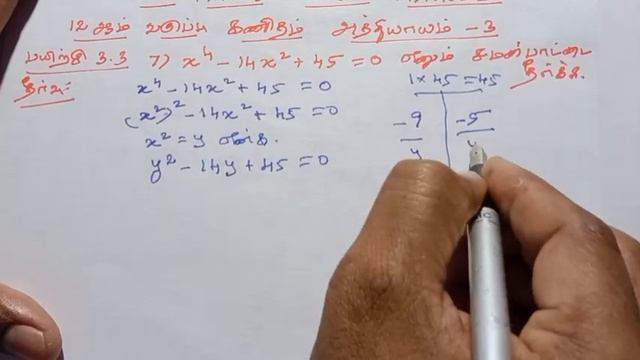 12 ஆம் வகுப்பு கணிதம் அத்தியாயம் - 3
பயிற்சி 3.3 7) x⁴ - 14x² + 45 = 0 எனும் சமன்பாட்டை தீர்க்க.
தீர்வு:
x⁴ - 14x² + 45 = 0
(x²)² - 14x² + 45 = 0
x² = y என்க.
y² - 14y + 45 = 0
1 × 45 = 45
-9 -5
y